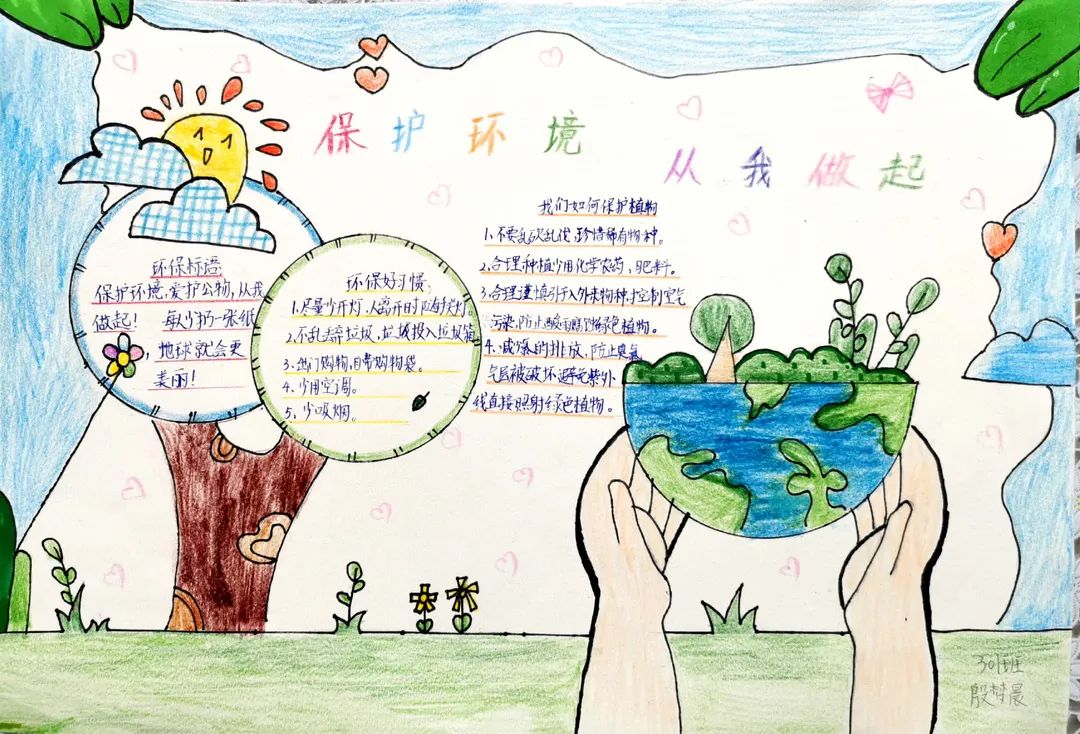 保护环境
从我做起
环保标语
保护环境,爱护公物,从我
做起! 每少扔一张纸
,地球就会更
美丽!
环保好习惯:
1.尽量少开灯,人离开时随手关灯。
2.不乱丢弃垃圾,垃圾投入垃圾箱
3.出门购物,自带购物袋。
4.少用空调。
5.少吸烟。
我们如何保护植物
1.不要乱砍乱伐,珍惜稀有物种。
2.合理种植少用化学农药、肥料。
3.合理谨慎引入外来物种,控制空气
污染,防止酸雨腐蚀绿色植物。
4.减少的排放,防止臭氧
气层被破坏避免紫外
线直接照射绿色植物。
301班
殷梦晨